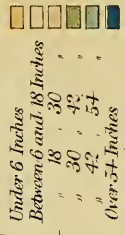 Under 6 Inches
Between 6 and 18 Inches
" 18 " 30 "
" 30 " 42 "
" 42 " 54 "
Over 54 Inches